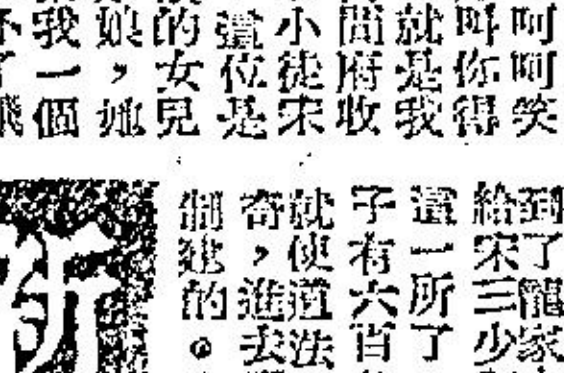 呵呵笑
叫你得
就是我
間府收
小徒宋
這位是
的女兒
娘，她
我一個
到了龍家
給宋三少
這一所了
子有六百
就使道法
奇，進去
建的。